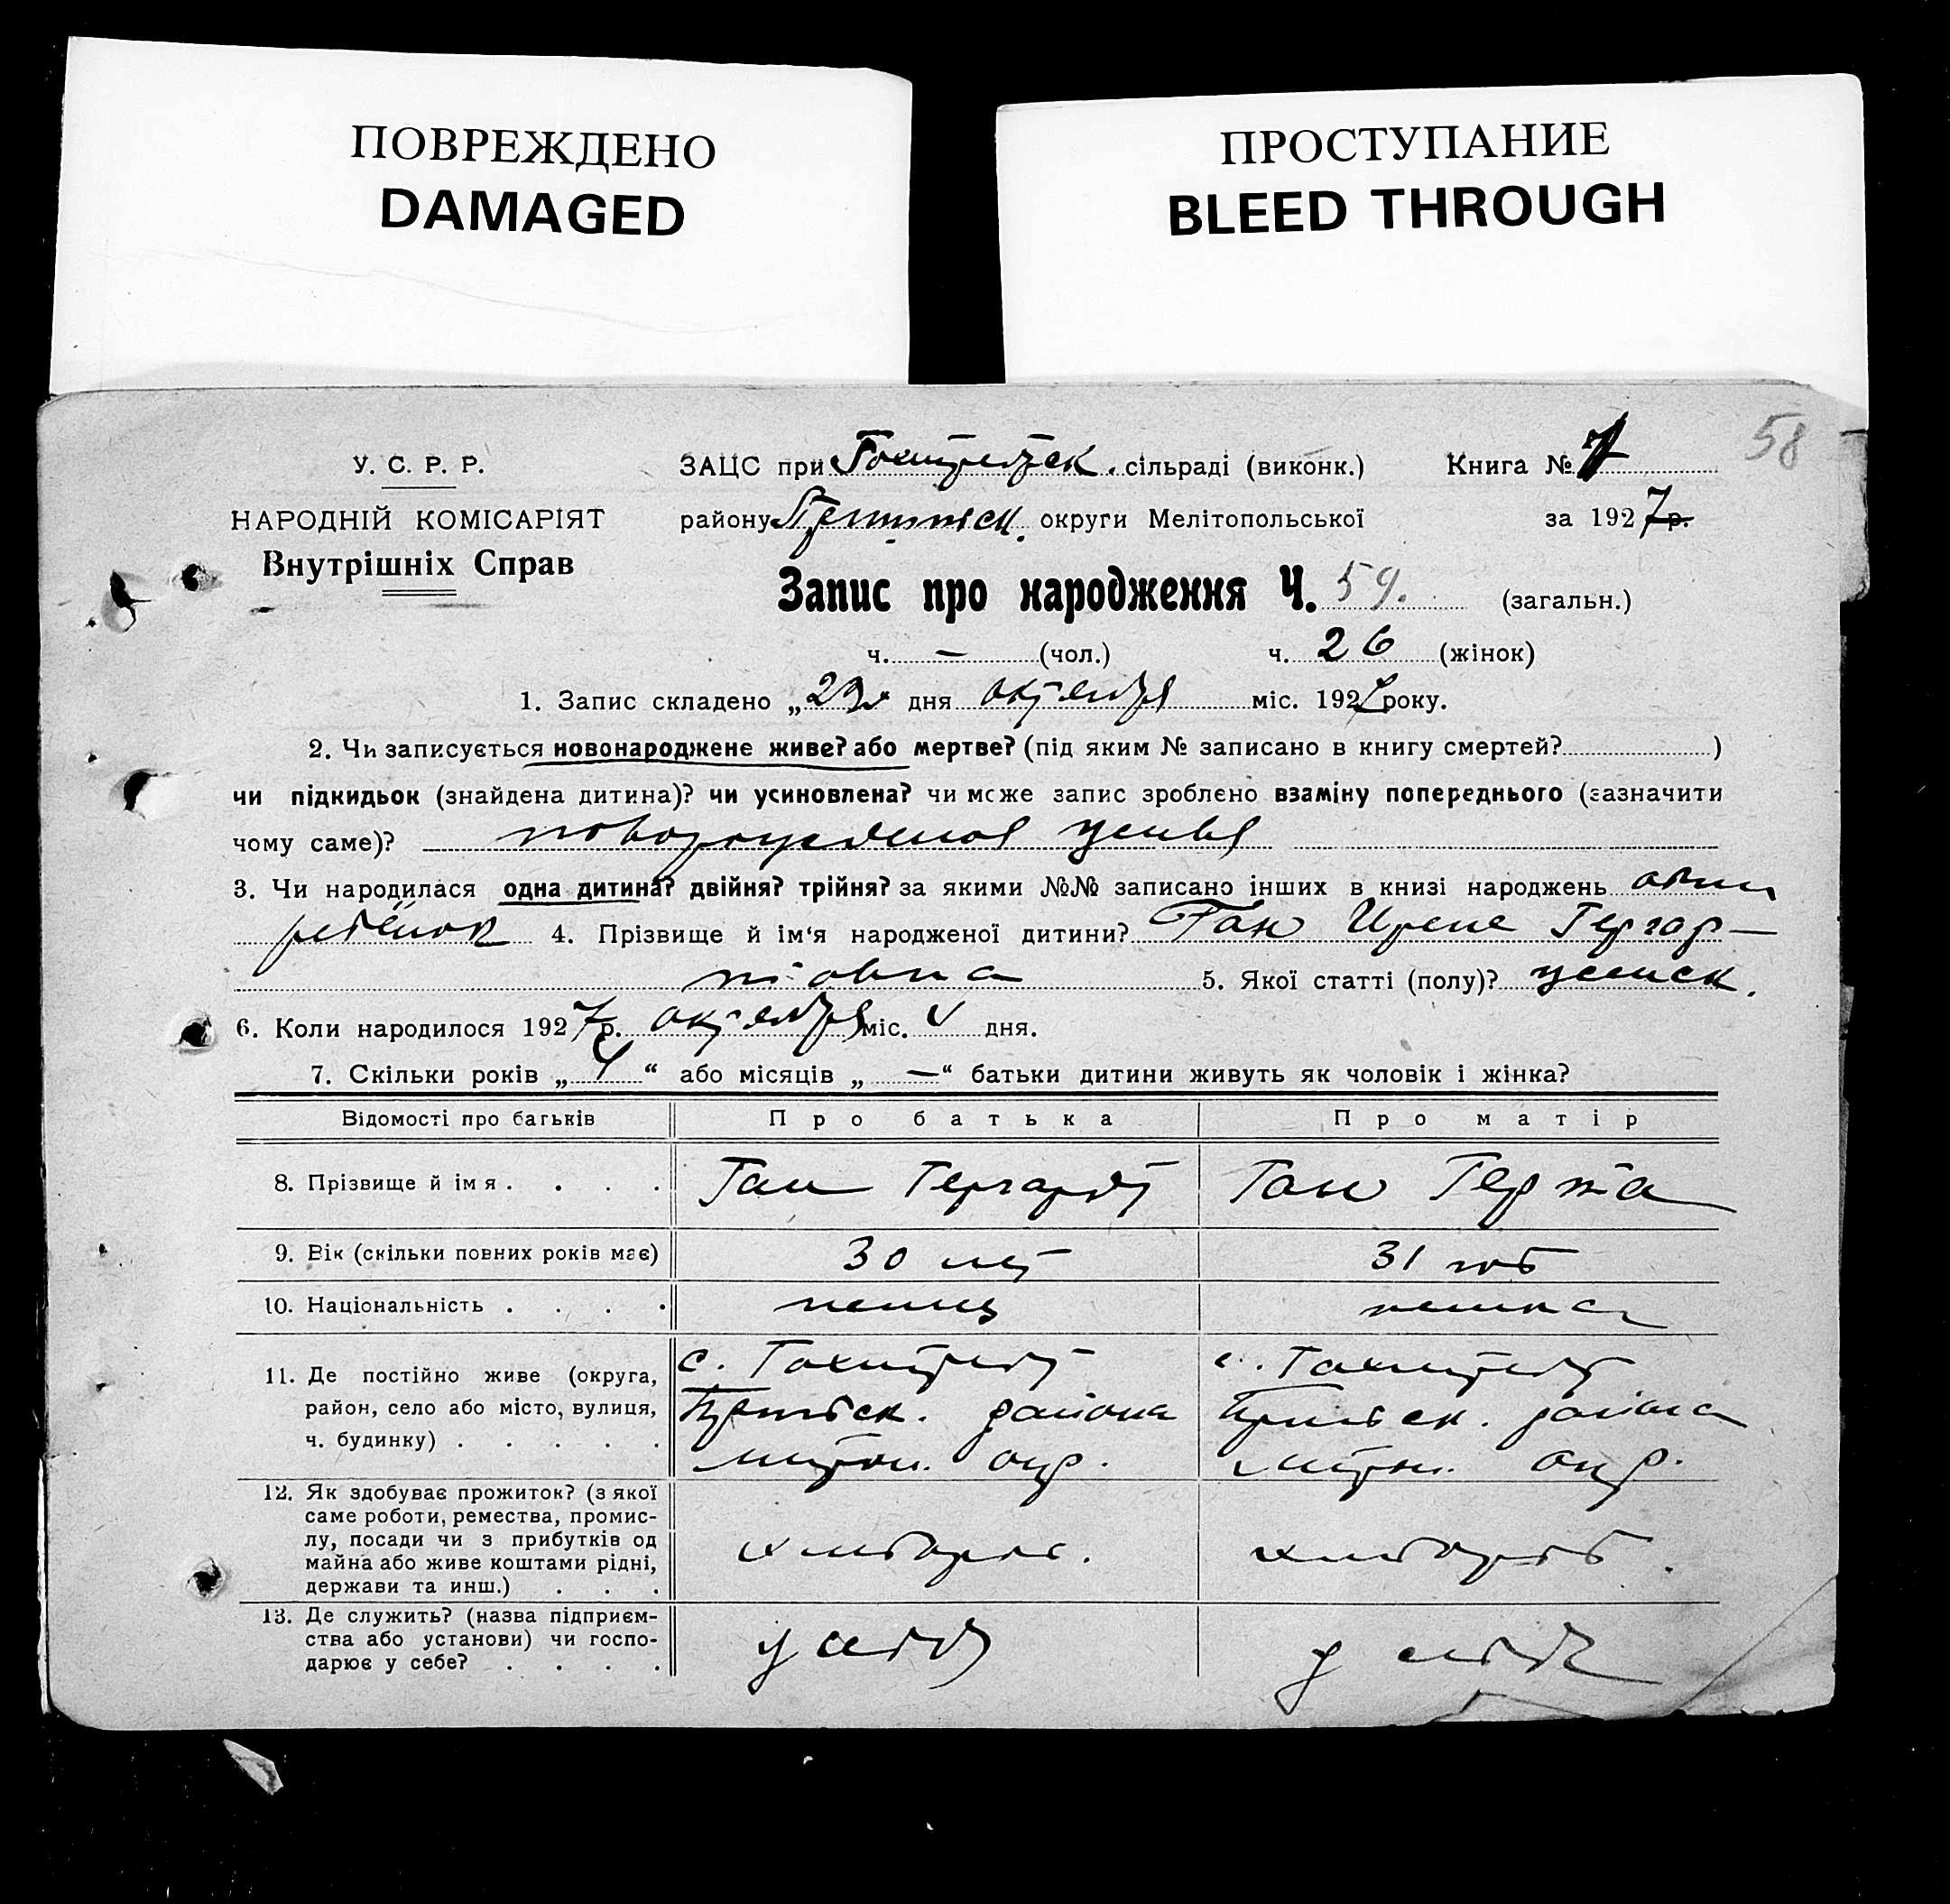 ПОВРЕЖДЕНО
DAMAGED
ПРОСТУПАНИЕ
BLEED THROUGH
58
У. С. Р. Р.
НАРОДНІЙ КОМІСАРІЯТ
Внутрішніх Справ
ЗАЦС при Гохштедтск. сільраді (виконк.) Книга №
району Пришибск. округи Мелітопольської за 1927 р.
Запис про народження Ч. 59. (загальн.)
ч. — (чол.) ч. 26 (жінок)
1. Запис складено „ дня октября міс. 1927 року.
2. Чи записується новонароджене живе? або мертве? (під яким № записано в книгу смертей? )
чи підкидьок (знайдена дитина)? чи усиновлена? чи може запис зроблено взаміну попереднього (зазначити
чому саме)? новорожденная живая
3. Чи народилася одна дитина? двійня? трійня? за якими №№ записано інших в книзі народжень один
ребёнок 4. Прізвище й ім‘я народженої дитини? Ган Ирене Гергар-
товна 5. Якої статті (полу)? женск.
6. Коли народилося 1927 р. октября міс. дня.
7. Скільки років „ 4 “ або місяців „ — “ батьки дитини живуть як чоловік і жінка?
Відомості про батьків Про батька Про матір
8. Прізвище й імя . . . . Ган Гергардт Ган Герта
9. Вік (скільки повних років має) 30 лет 31 год
10. Національність . . . . немец немка
11. Де постійно живе (округа, с. Гохштедт с. Гохштедт
район, село або місто, вулиця, Пришибск. района Пришибск. района
ч. будинку) . . . . . окр. окр.
12. Як здобуває прожиток? (з якої
саме роботи, ремества, промис-
лу, посади чи з прибутків од
майна або живе коштами рідні, хлебороб. хлебороб.
держави та инш.) . . .
13. Де служить? (назва підприєм-
ства або установи) чи госпо- у себя у себя
дарює у себе? . . . .